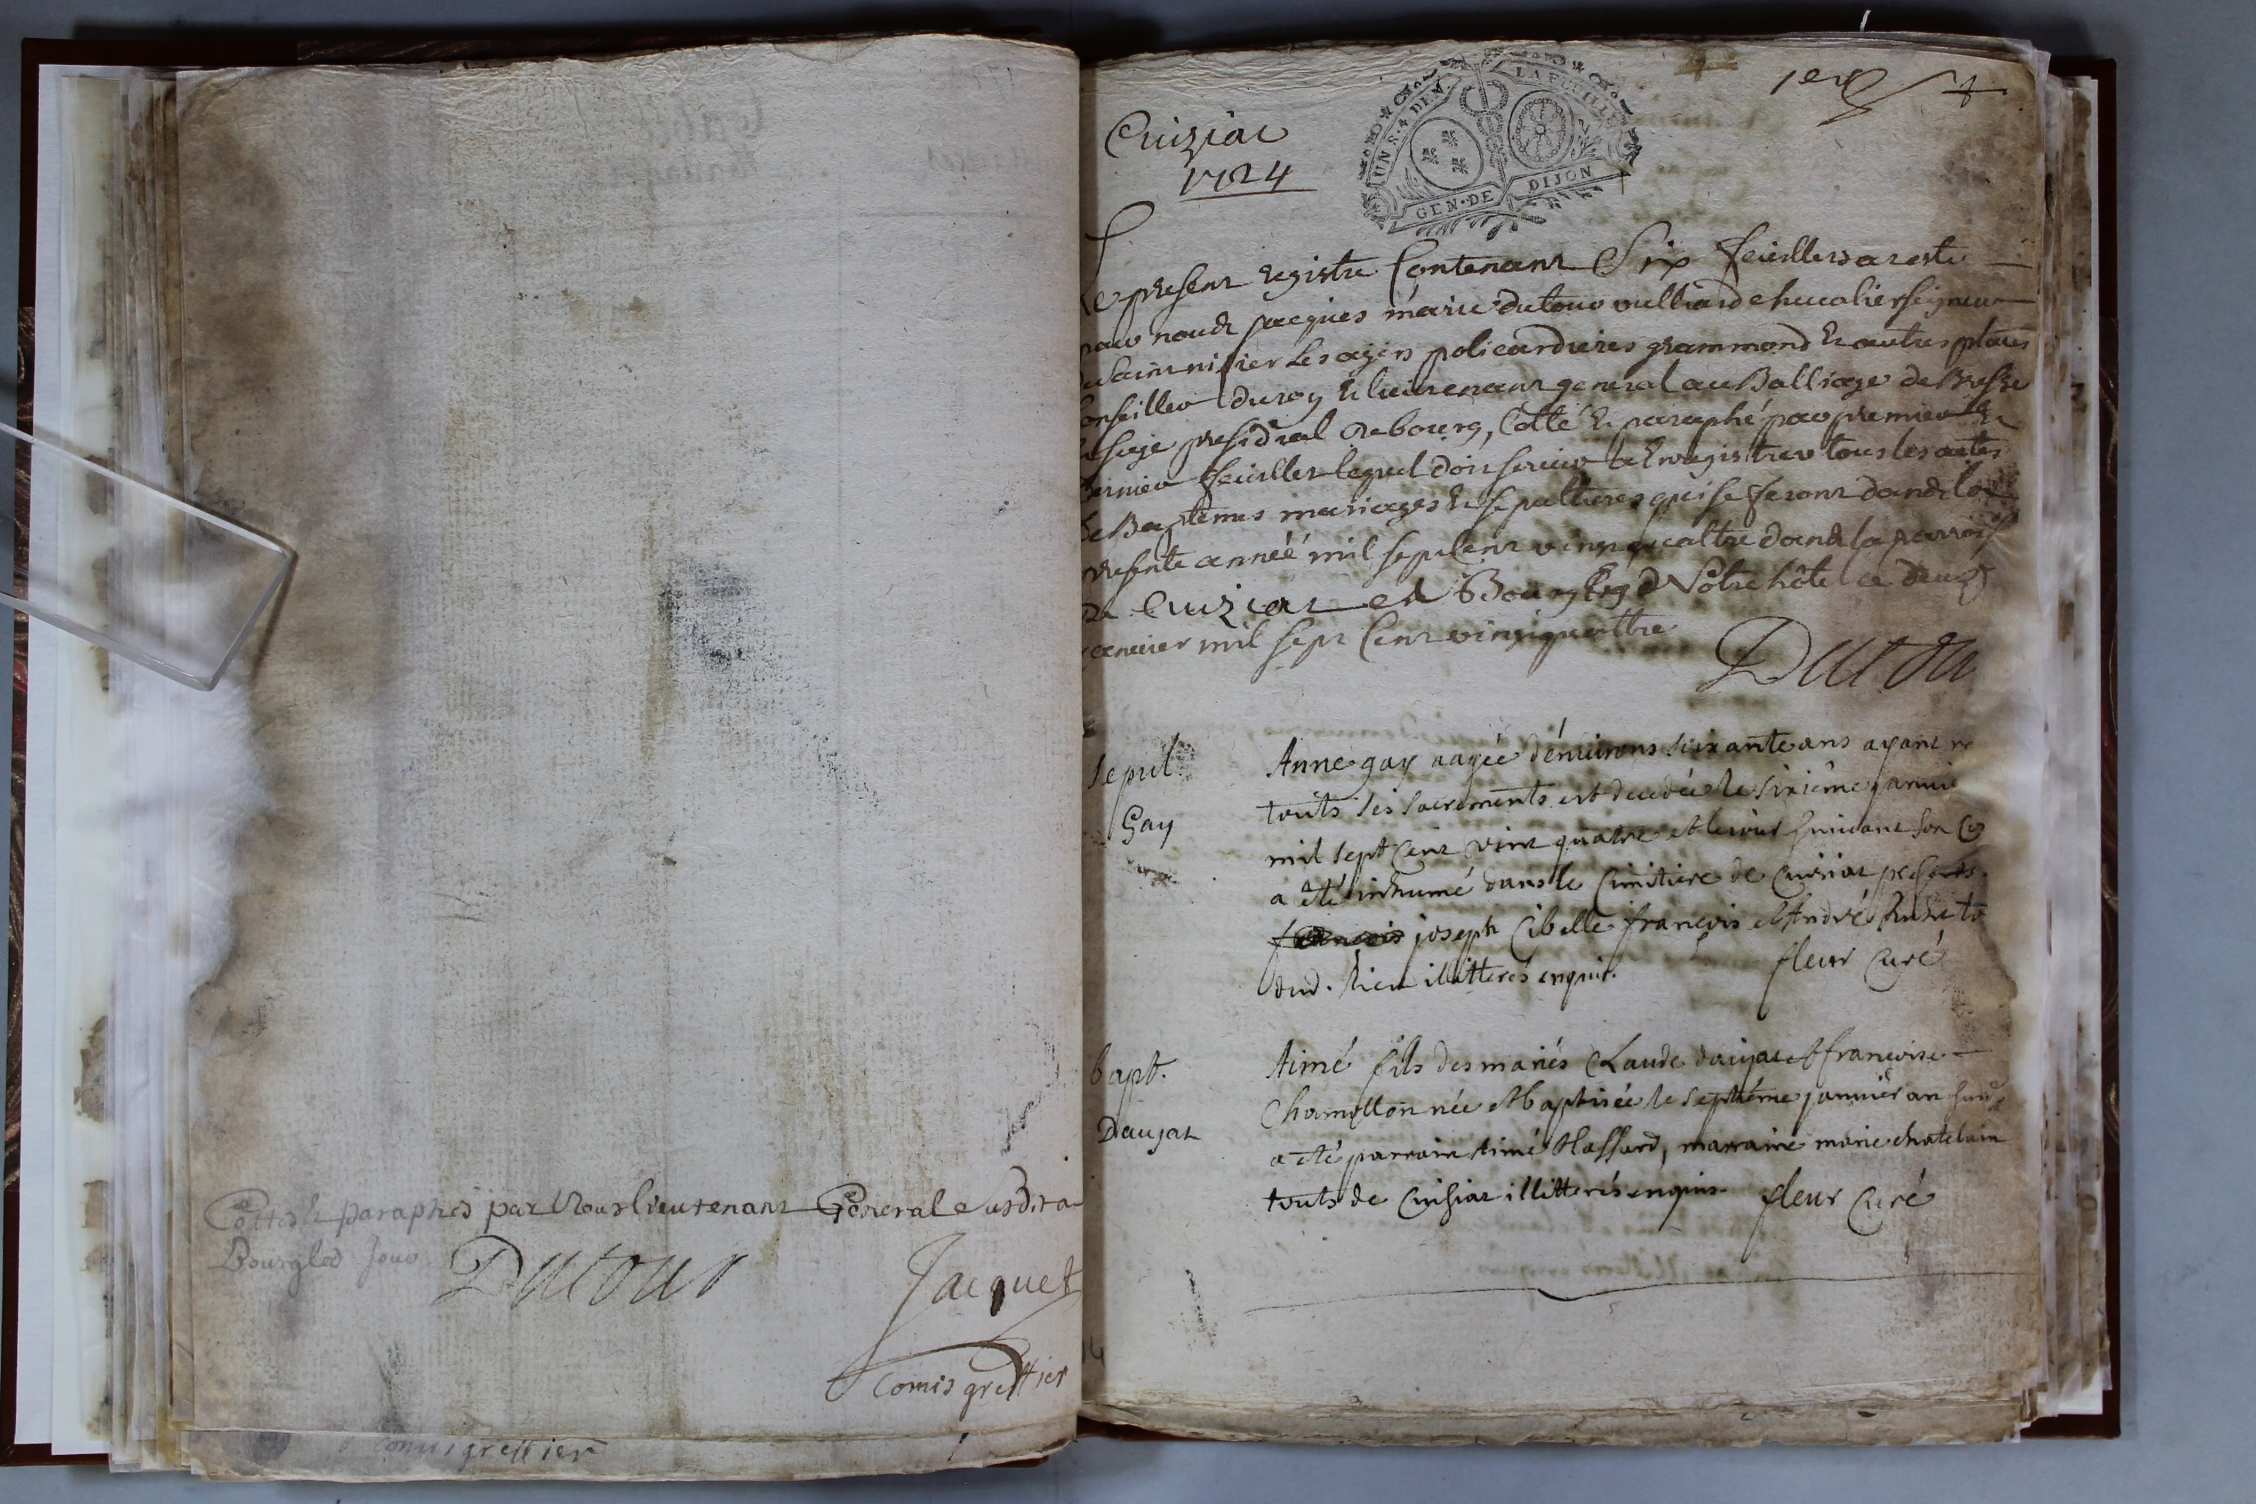 Cottes & paraphés par Nous lieutenant General susdit a
Bourg led Jour
Dutour
Jacquet
Comis greffier
comis greffier
1er
UN S. 4 DEN. LA FEUILLE
GEN. DE DIJON
Cuiziat
1724
Le present registre Contenant Six feuillets a esté
par nous Jacques marie dutour vulliard chevalier seigneur
de saint nisier policardieres grammond & autres places
Conseiller du roy & lieutenant general au Balliage de Bresse
& siege presidial de bourg, Cotté & paraphé par premier &
dernier feuillet lequel doit servir a Enregistrer tous les actes
de Baptemes mariages & sepultures qui se feront dans la
presente année mil sept Cent vingt quattre dans la parroisse
de Cuiziat a Bourg en Nôtre hôtel ce deux
janvier mil sept Cent vingt quattre
Dutou
sepul.
Gay
Anne gay aagée d'environs soixante ans ayant re
touts ses sacrements est decedée le sixième janvie
mil sept Cent vint quatre et le jour suivant son Co
a été inhumé dans le Cimitiere de Cuisiat presents
joseph Cibelle françois et André
dud. lieu illitterés enquis.
fleur Curé
bapt.
Daujat
Aimé fils des mariés Claude daujat et françoise
Chamillon née et baptisée le septième janvier an susd
a été parrain Aimé Massard, marraine marie chatelain
touts de Cuisiat illitterés enquis fleur Curé